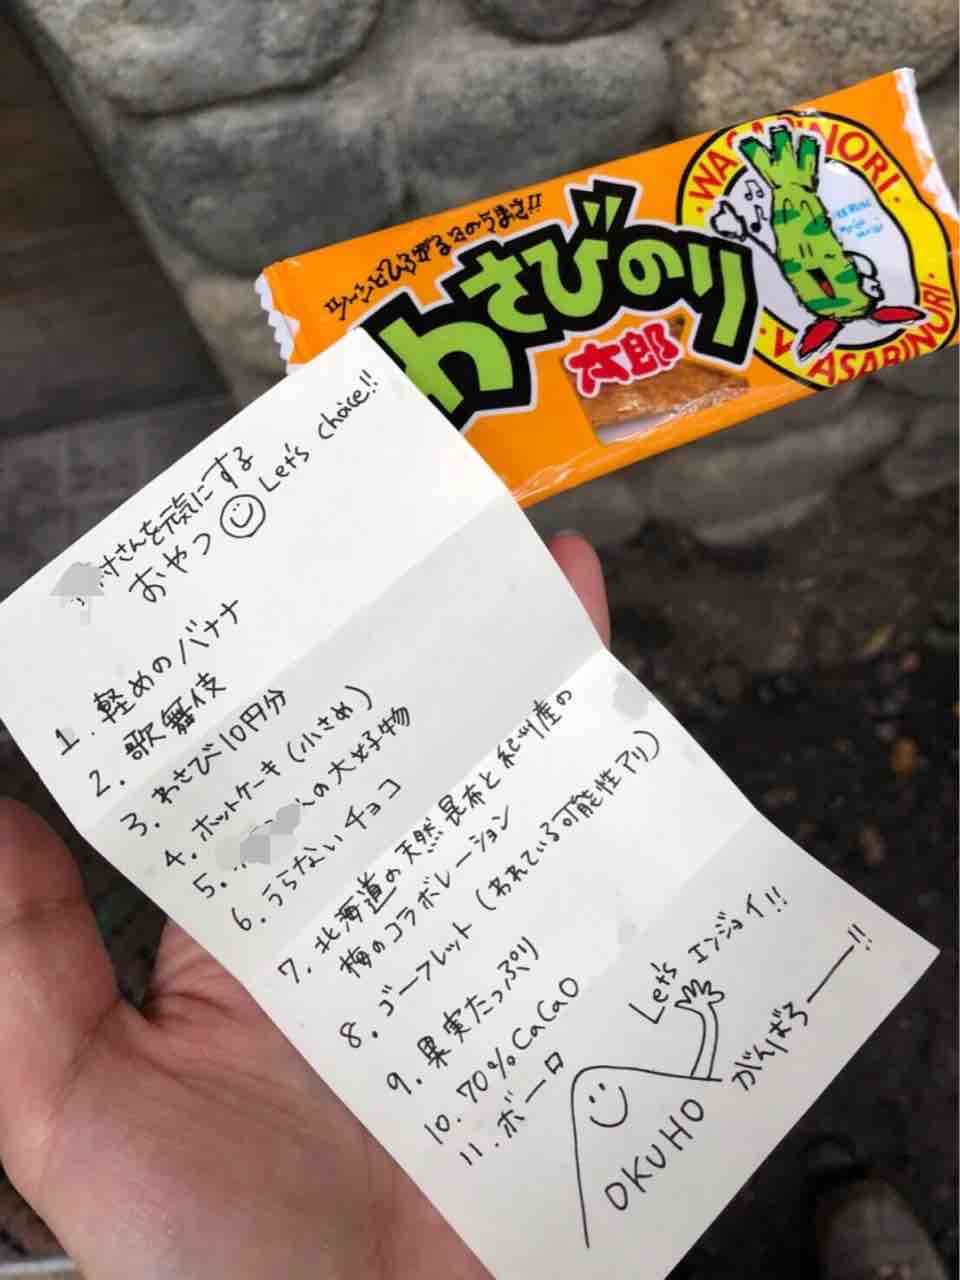 ツーンとひろがるそのうまさ!!
わさびのり
太郎
WASABINORI
WASABINORI
さんを元気にする
おやつ Let's choice!!
1. 軽めのバナナ
2. 歌舞伎
3. わさび10円分
4. ホットケーキ(小さめ)
5. の大好物
6. うらないチョコ
7. 北海道の天然昆布と紀州産の
梅のコラボレーション
8. ゴーフレット(われている可能性アリ)
9. 果実たっぷり
10. 70% CaCaO
11. ボーロ
Let's エンジョイ!!
OKUHO
がんばろー!!